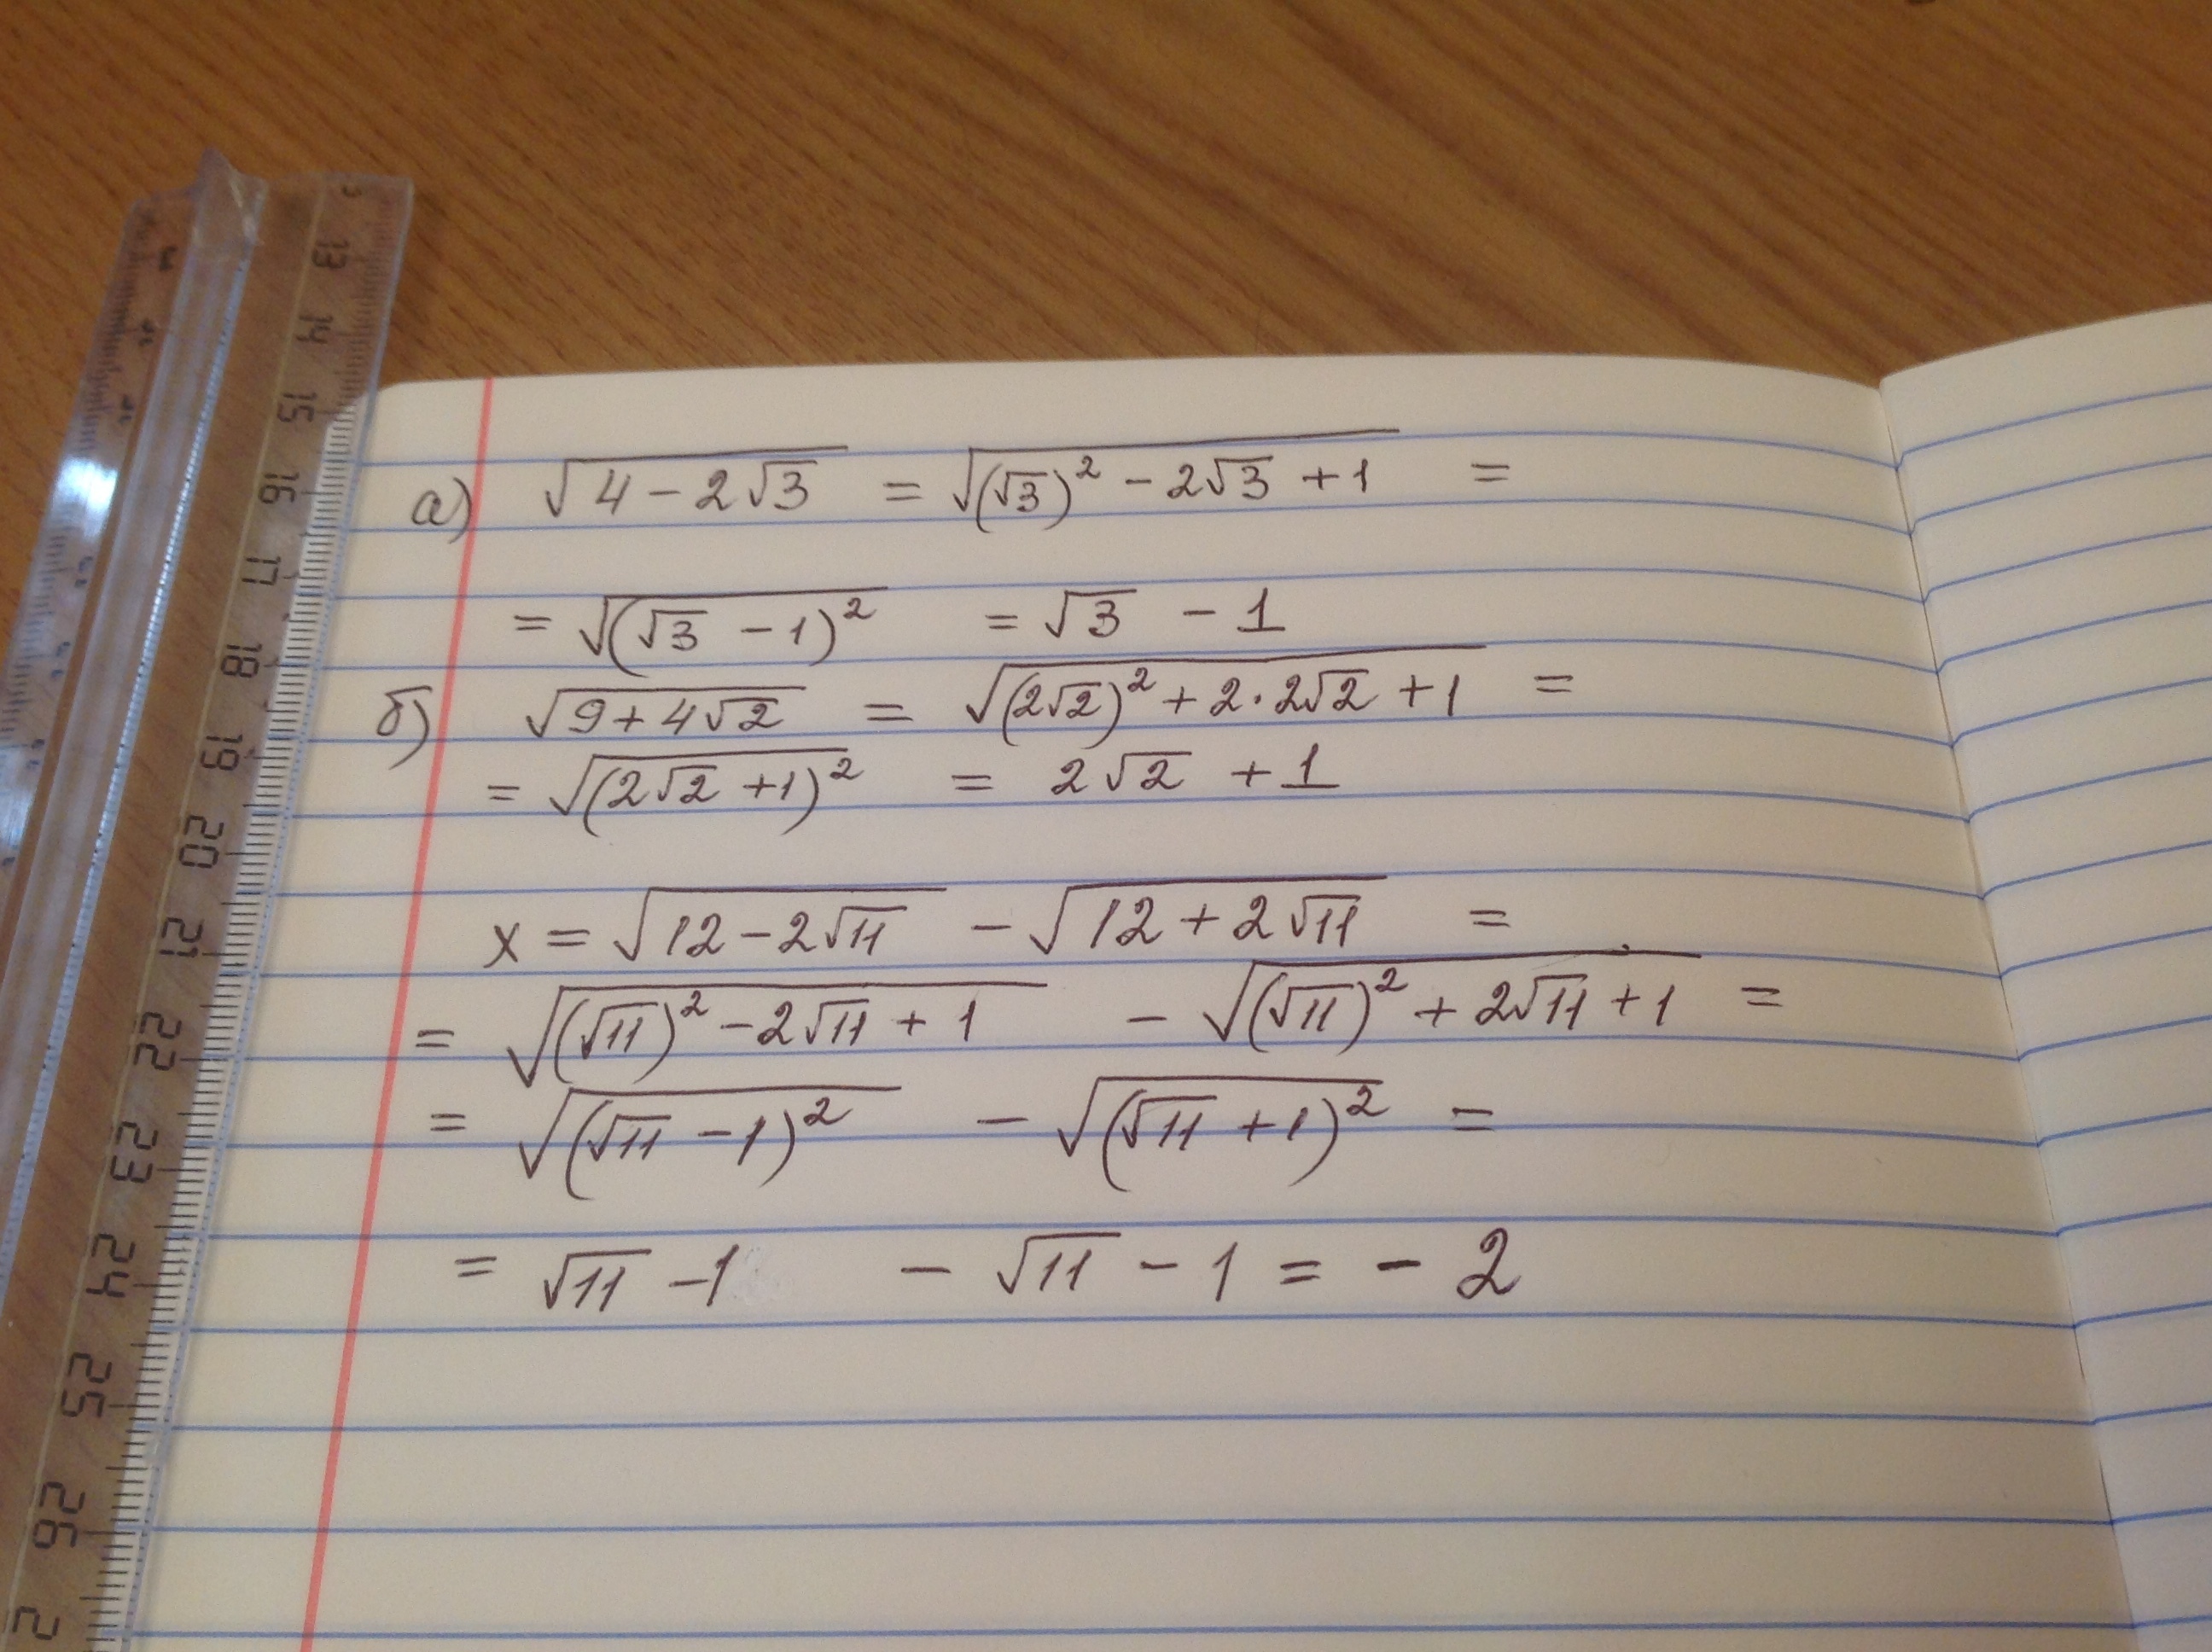 а) √(4 − 2√3) = √((√3)² − 2√3 + 1) =
= √((√3 − 1)²) = √3 − 1
б) √(9 + 4√2) = √((2√2)² + 2·2√2 + 1) =
= √((2√2 + 1)²) = 2√2 + 1
x = √(12 − 2√11) − √(12 + 2√11) =
= √((√11)² − 2√11 + 1) − √((√11)² + 2√11 + 1) =
= √((√11 − 1)²) − √((√11 + 1)²) =
= √11 − 1 − √11 − 1 = − 2
13
14
15
16
17
18
19
20
21
22
23
24
25
26